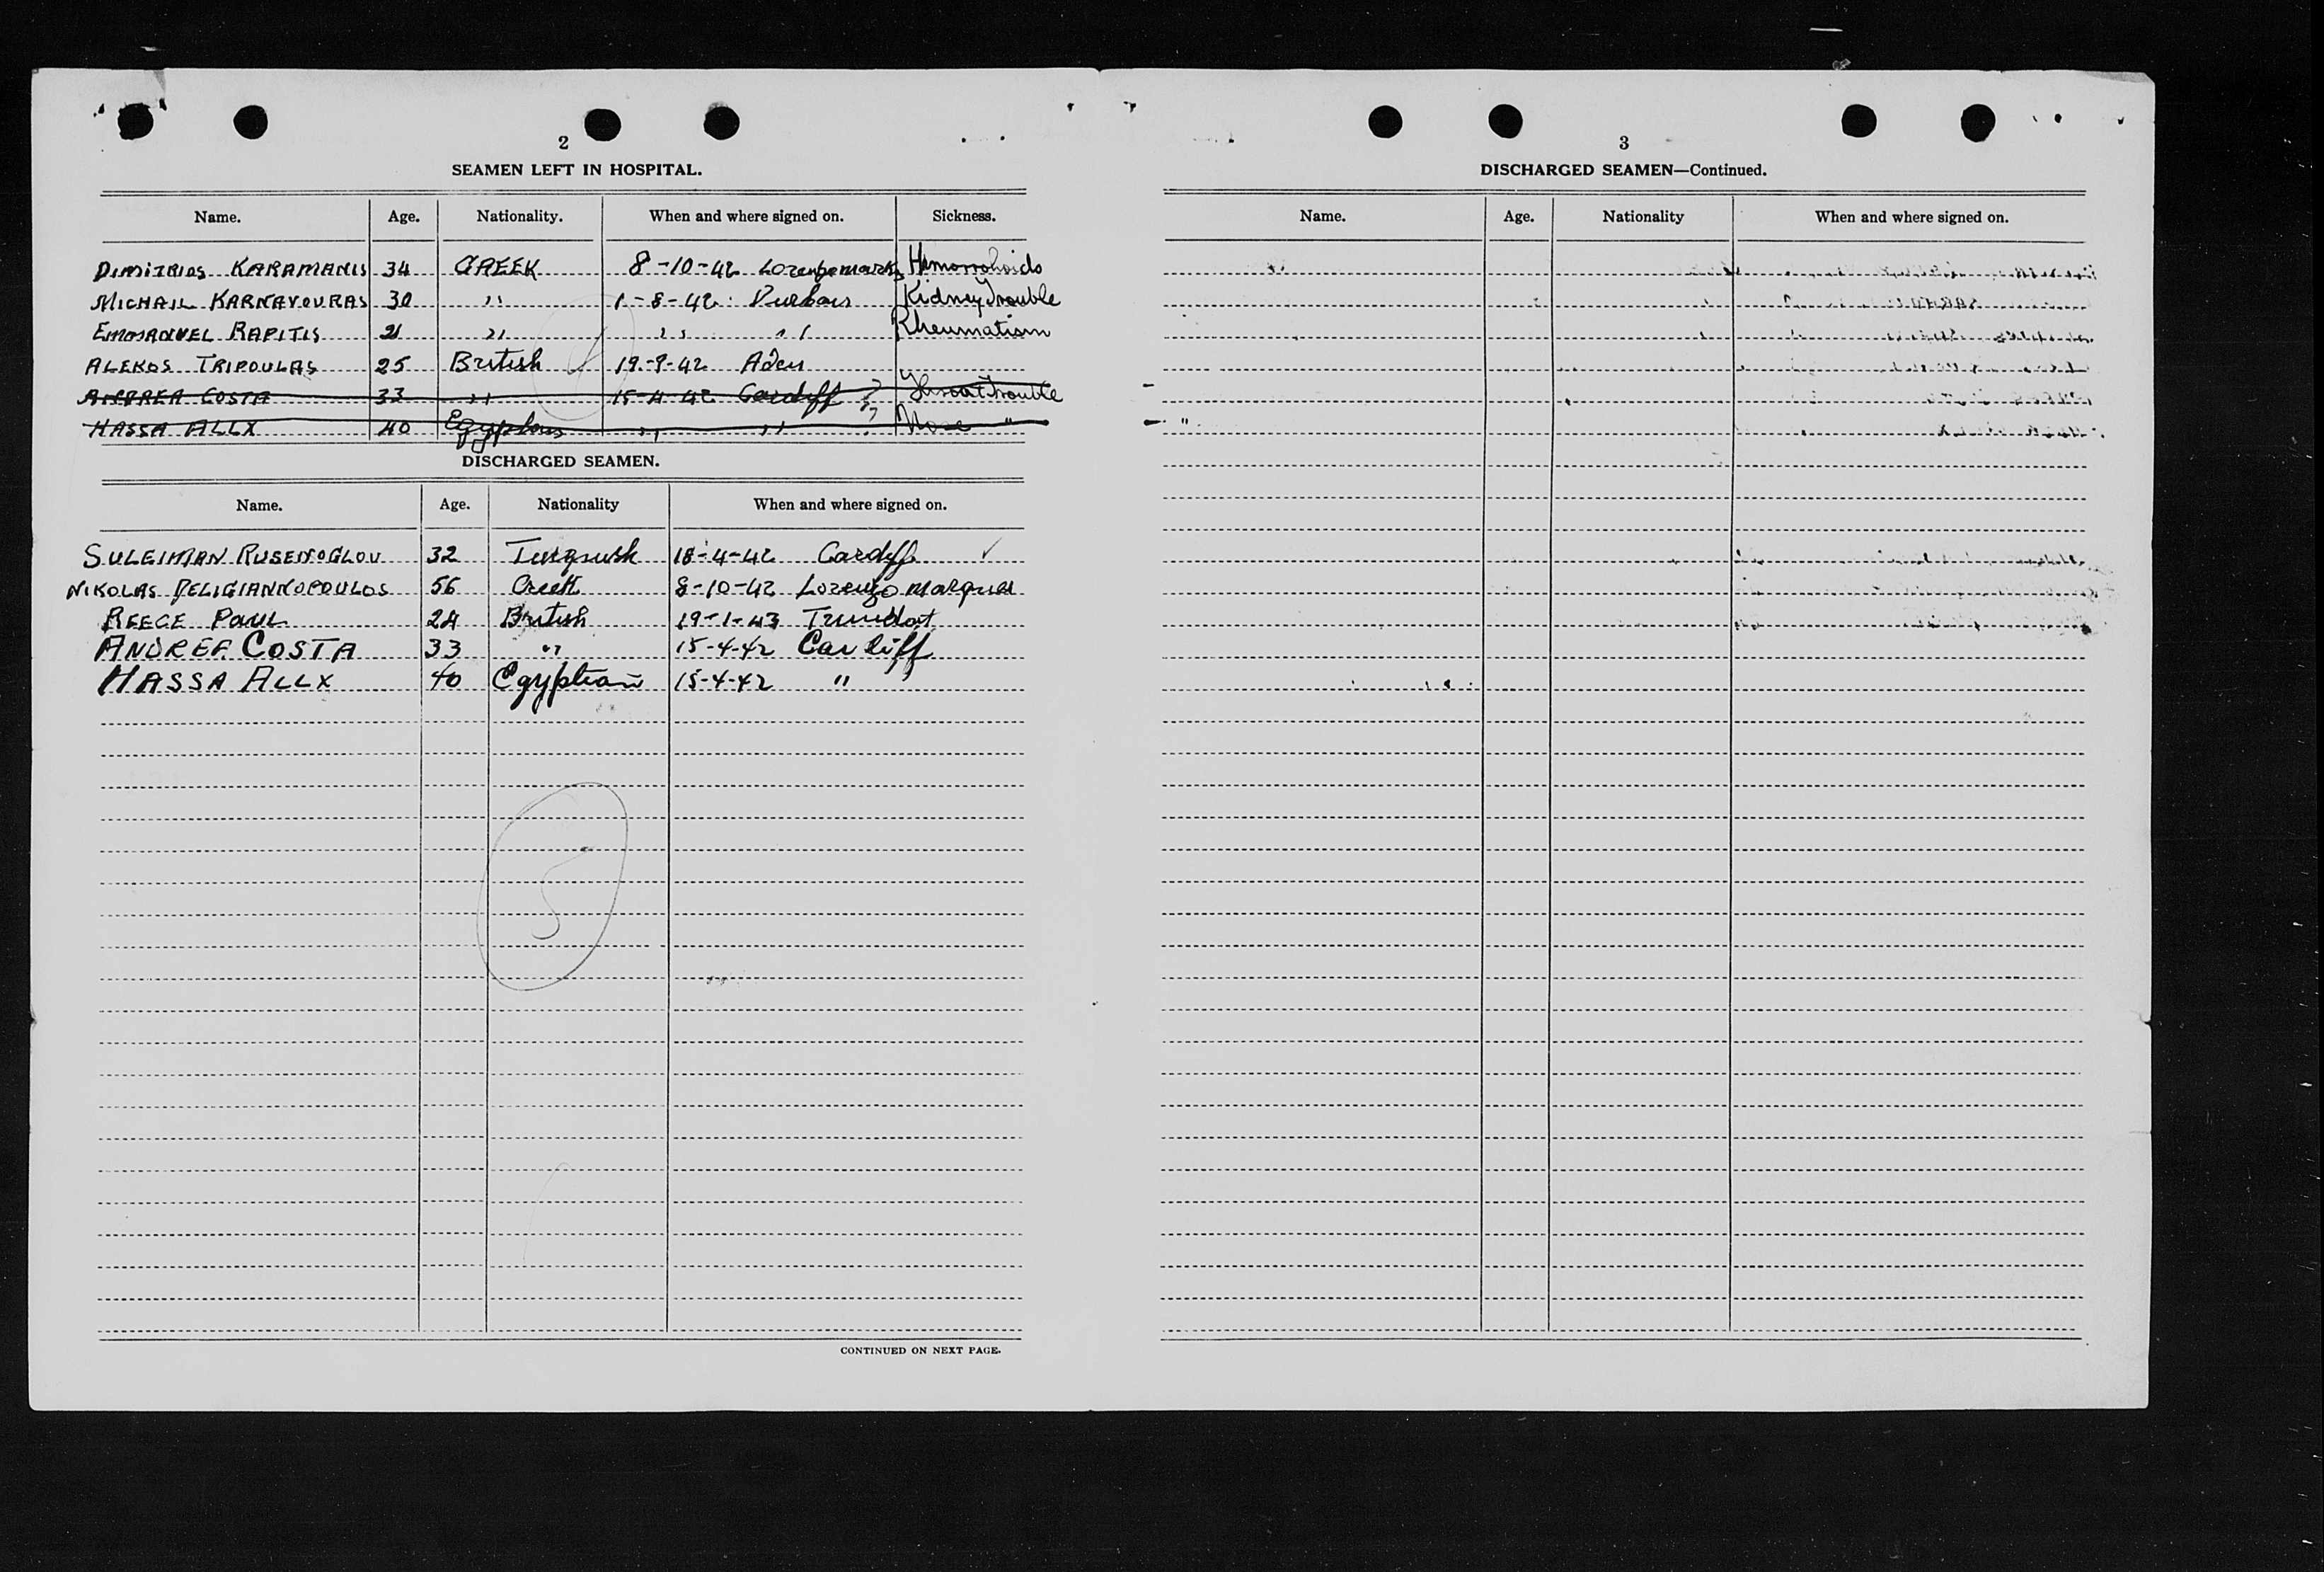 2
SEAMEN LEFT IN HOSPITAL.
Name. Age. Nationality. When and where signed on. Sickness.
DIMITRIOS KARAMANIS 34 GREEK 8-10-42 Hemorrohoids
MICHAIL KARNAVOURAS 30 " 1-8-42 Durban Kidney Trouble
EMMANUEL RAPITIS 21 " " " Rheumatism
ALEKOS TRIPOULAS 25 British 19-9-42 Aden
ANDREA COSTA 33 " 15-4-42 Cardiff Throat Trouble
HASSA ALLX 40 " " Nose "
DISCHARGED SEAMEN.
Name. Age. Nationality When and where signed on.
SULEIMAN RUSENOGLOU 32 18-4-42 Cardiff ✓
NIKOLAS DELIGIANNOPOULOS 56 Greek 8-10-42 Lorenzo Marques
REECE PAUL 24 British 19-1-43
ANDREA COSTA 33 " 15-4-42 Cardiff
HASSA ALLX 40 Egyptian 15-4-42 "
5
CONTINUED ON NEXT PAGE.
3
DISCHARGED SEAMEN—Continued.
Name. Age. Nationality When and where signed on.